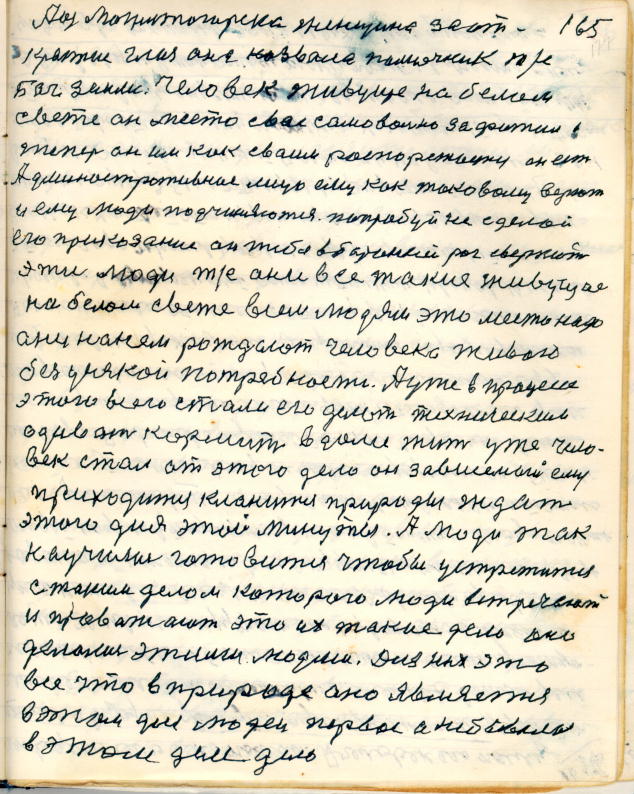 165
Магнитогорска женщина за от-
крытие глаз она назвала помочник т/е
Бог земли. Человек живуще на белом
свете он место свае самовольно захватил и
тепер он им как сваим роспорежаится он ест
Административнае лицо ему как таковому верют
и ему люди подчиняются. попробуй не сделой
его приказание он тибя в бараний рог свернит
эти люди т/е ани все такие живущие
на белом свете всем людям это место надо
ани на нем рождают человека живого
без усякой потребности. А уже в процесе
этого всего стали его делат техническим
одиват кормить в доме жит уже чело-
век стал от этого дела он зависемай ему
приходится кланится природы ждат
этого дня этой минуты. А люди так
научились готовится чтобы устретится
с таким делом которого люди встречают
и праважают это их такие дело ано
делалися этими людми. Для них это
все что в природе ано является
в этом деле людей первае а небывалае
в этом деле дело